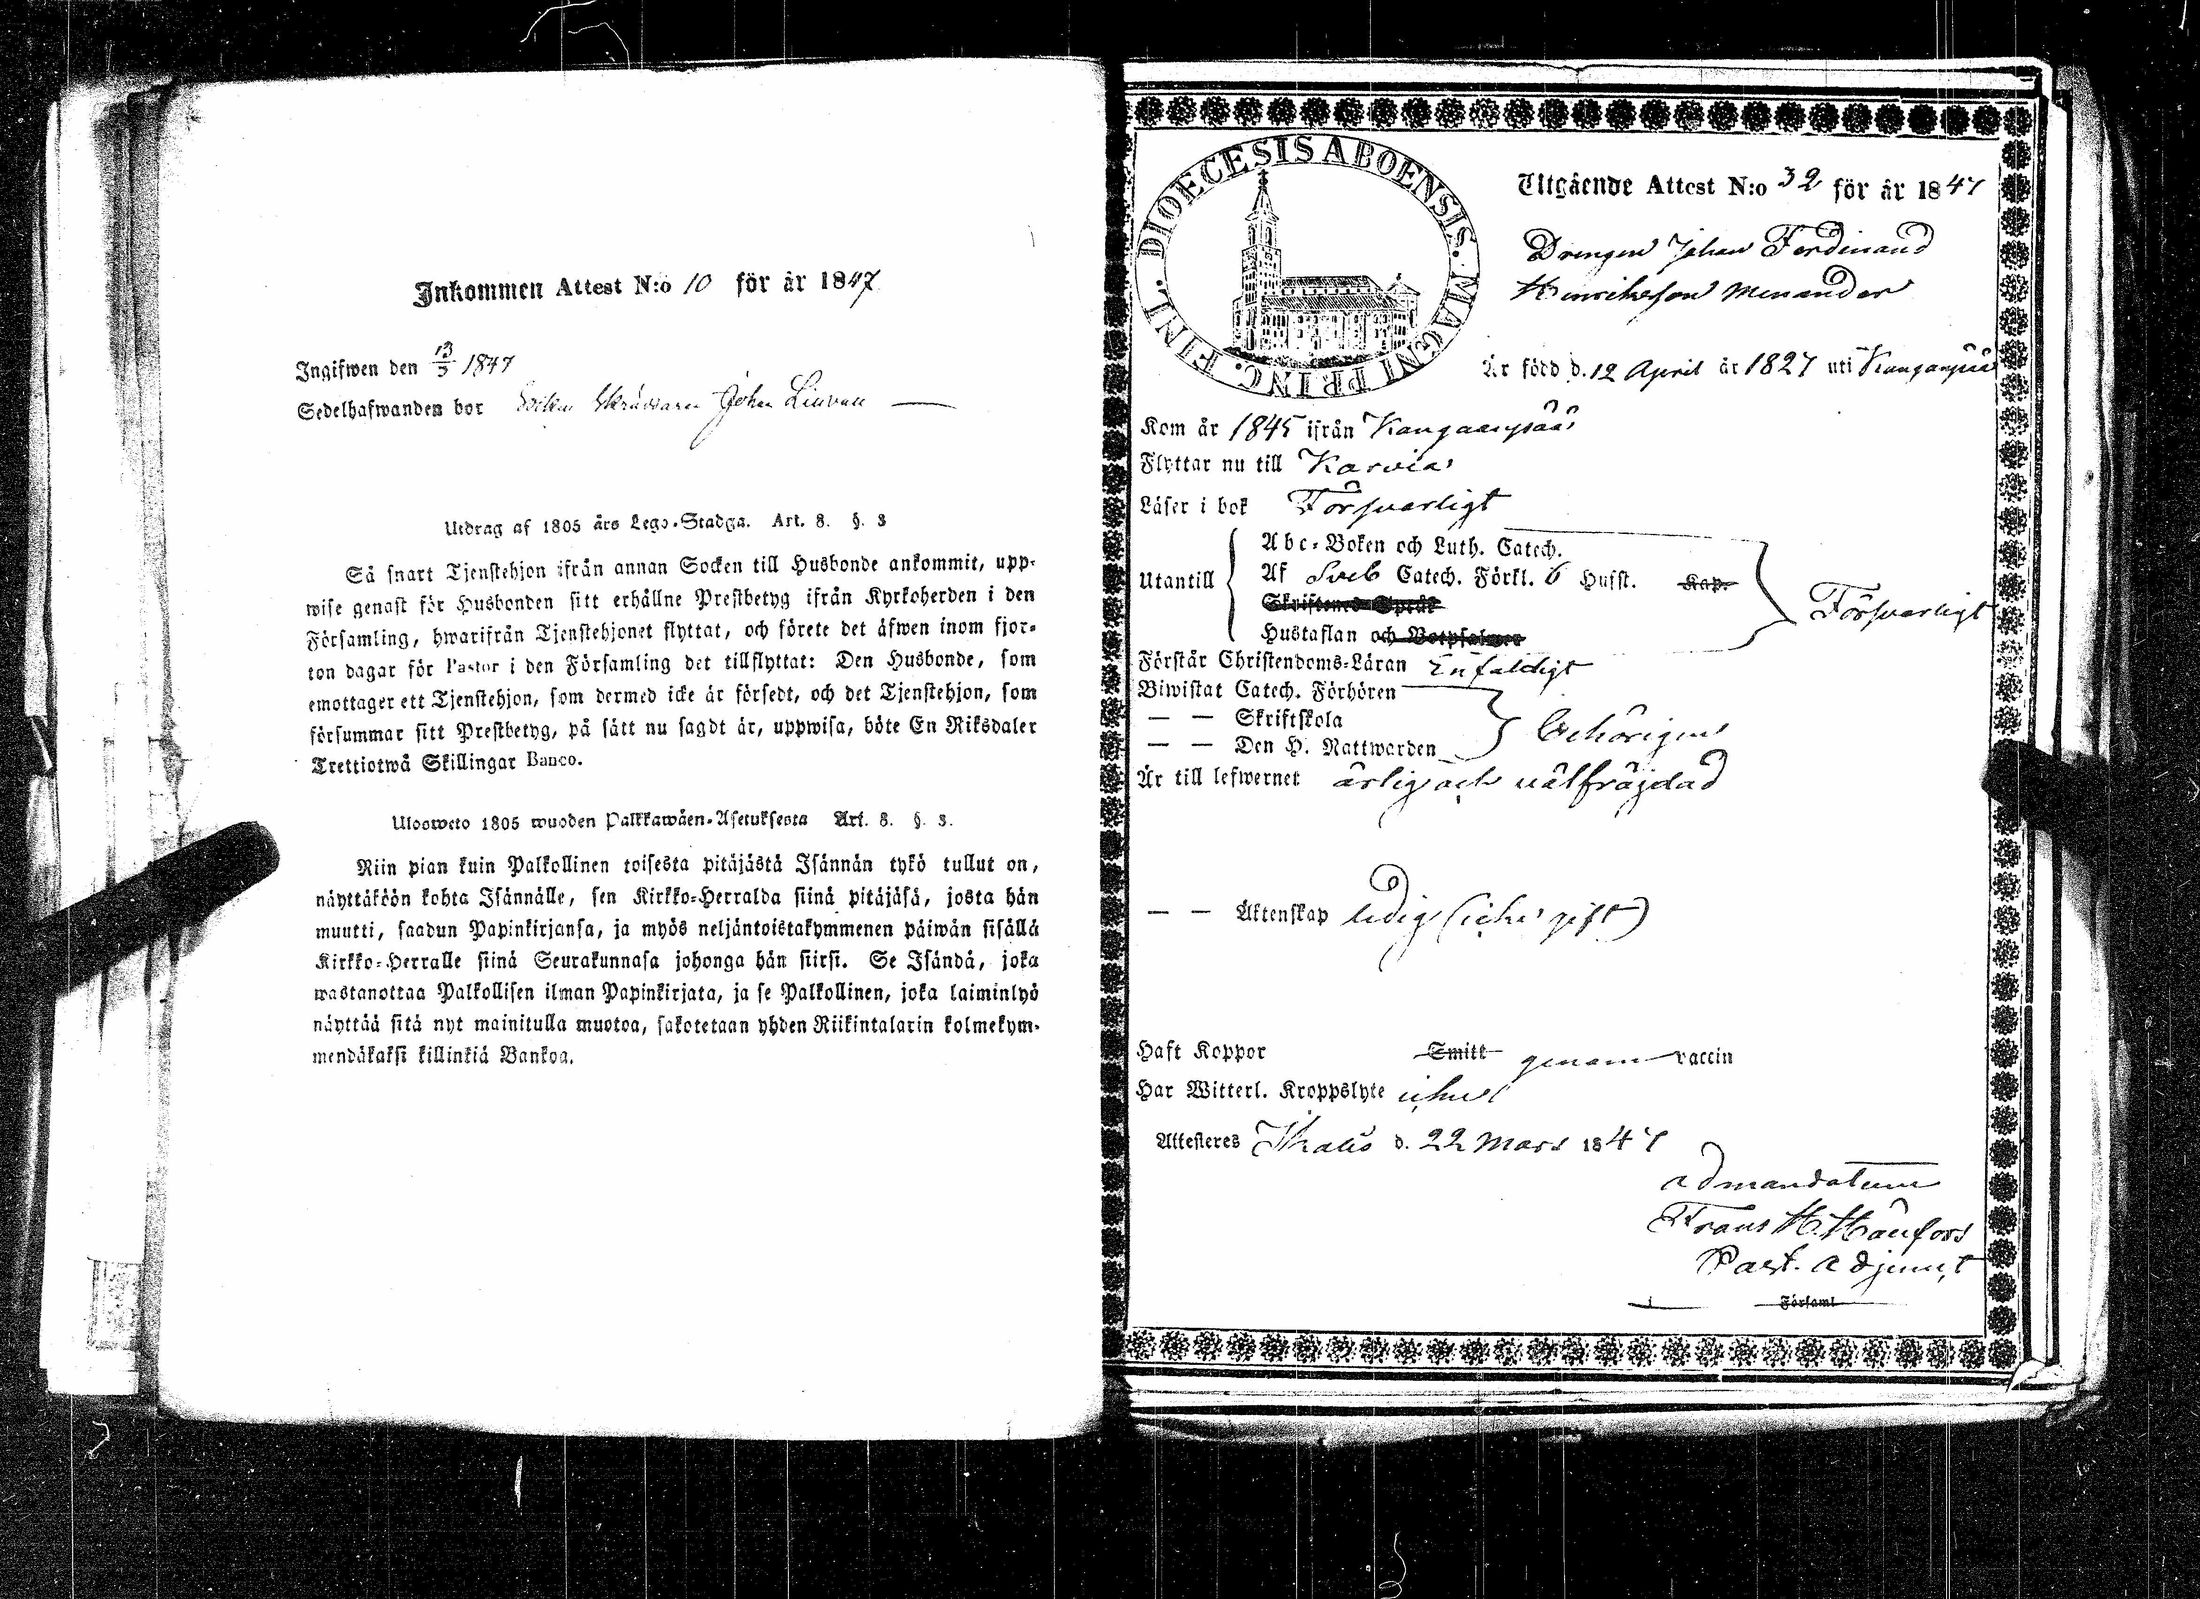 Inkommen Attest N:o 10 för år 1847
Ingifwen den 13/5 1847
Sedelhafwanden bor Socken Skräddaren Johan
Utdrag af 1805 års Lego-Stadga. Art. 8. §. 3
Så snart Tjenstehjon ifrån annan Socken till Husbonde ankommit, upp-
wise genast för Husbonden sitt erhållne Prestbetyg ifrån Kyrkoherden i den
Församling, hwarifrån Tjenstehjonet flyttat, och förete det äfwen inom fjor-
ton dagar för Pastor i den Församling det tillflyttat: Den Husbonde, som
emottager ett Tjenstehjon, som dermed icke är försedt, och det Tjenstehjon, som
försummar sitt Prestbetyg, på sätt nu sagdt är, uppwisa, böte En Riksdaler
Trettiotwå Skillingar Banco.
Ulosweto 1805 wuoden Palkkawäen-Asetuksesta Art. 8. §. 3.
Niin pian kuin Palkollinen toisesta pitäjästä Isännän tykö tullut on,
näyttäköön kohta Isännälle, sen Kirkko-Herralda siinä pitäjäsä, josta hän
muutti, saadun Papinkirjansa, ja myös neljäntoistakymmenen päiwän sisällä
Kirkko-Herralle siinä Seurakunnasa johonga hän siirsi. Se Isändä, joka
wastanottaa Palkollisen ilman Papinkirjata, ja se Palkollinen, joka laiminlyö
näyttää sitä nyt mainitulla muotoa, sakotetaan yhden Riikintalarin kolmekym-
mendäkaksi killinkiä Bankoa.
DIOECESIS ABOENSIS. MAGNI PRINC. FINL.
Utgående Attest N:o 32 för år 1847
Drengen Johan Ferdinand
Henriksson Menander
Är född d. 12 April år 1827 uti Kanganpää
Kom år 1845 ifrån Kangaanpää
Flyttar nu till Karvia
Läser i bok Försvarligt
Utantill
Abc-Boken och Luth. Catech.
Af Sveb Catech. Förkl. 6 Hufst. Kap.
Skriftenes Språk
Hustaflan och Botpsalmer
Försvarligt
Förstår Christendoms-Läran Enfaldigt
Biwistat Catech. Förhören
— — Skriftskola
— — Den H. Nattwarden
behörigen
Är till lefwernet ärlig och välfräjdad
— — Äktenskap ledig (icke gift)
Haft Koppor Smitt genom vaccin
Har Witterl. Kroppslyte icke
Attesteres Ikalis d. 22 Mars 1847
ad mandatum
Frans H. Hänfors
Past. Adjunct
Församl